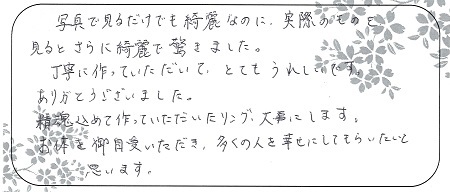 写真で見るだけでも綺麗なのに、実際のものを
見るとさらに綺麗で驚きました。
丁寧に作っていただいて、とてもうれしいです。
ありがとうございました。
精魂込めて作っていただいたリング、大事にします。
お体を御自愛いただき、多くの人を幸せにしてもらいたいと
思います。